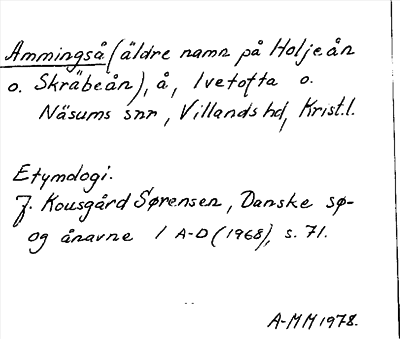 Ammingså (äldre namn på Holjeån
o. Skräbeån), å, Ivetofta o.
Näsums snr, Villands hd, Krist.l.
Etymologi:
J. Kousgård Sørensen, Danske sø-
og ånavne 1 A-D (1968), s. 71.
A-MM 1978.